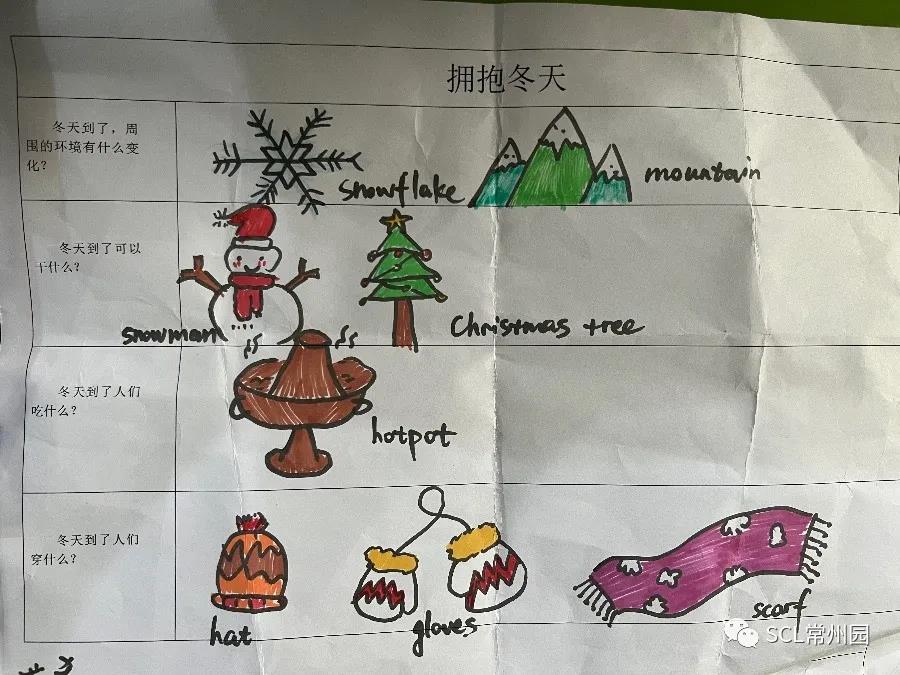 拥抱冬天
冬天到了，周
围的环境有什么变
化？
snowflake
mountain
冬天到了可以
干什么？
snowman
Christmas tree
冬天到了人们
吃什么？
hotpot
冬天到了人们
穿什么？
hat
gloves
scarf
SCL常州园